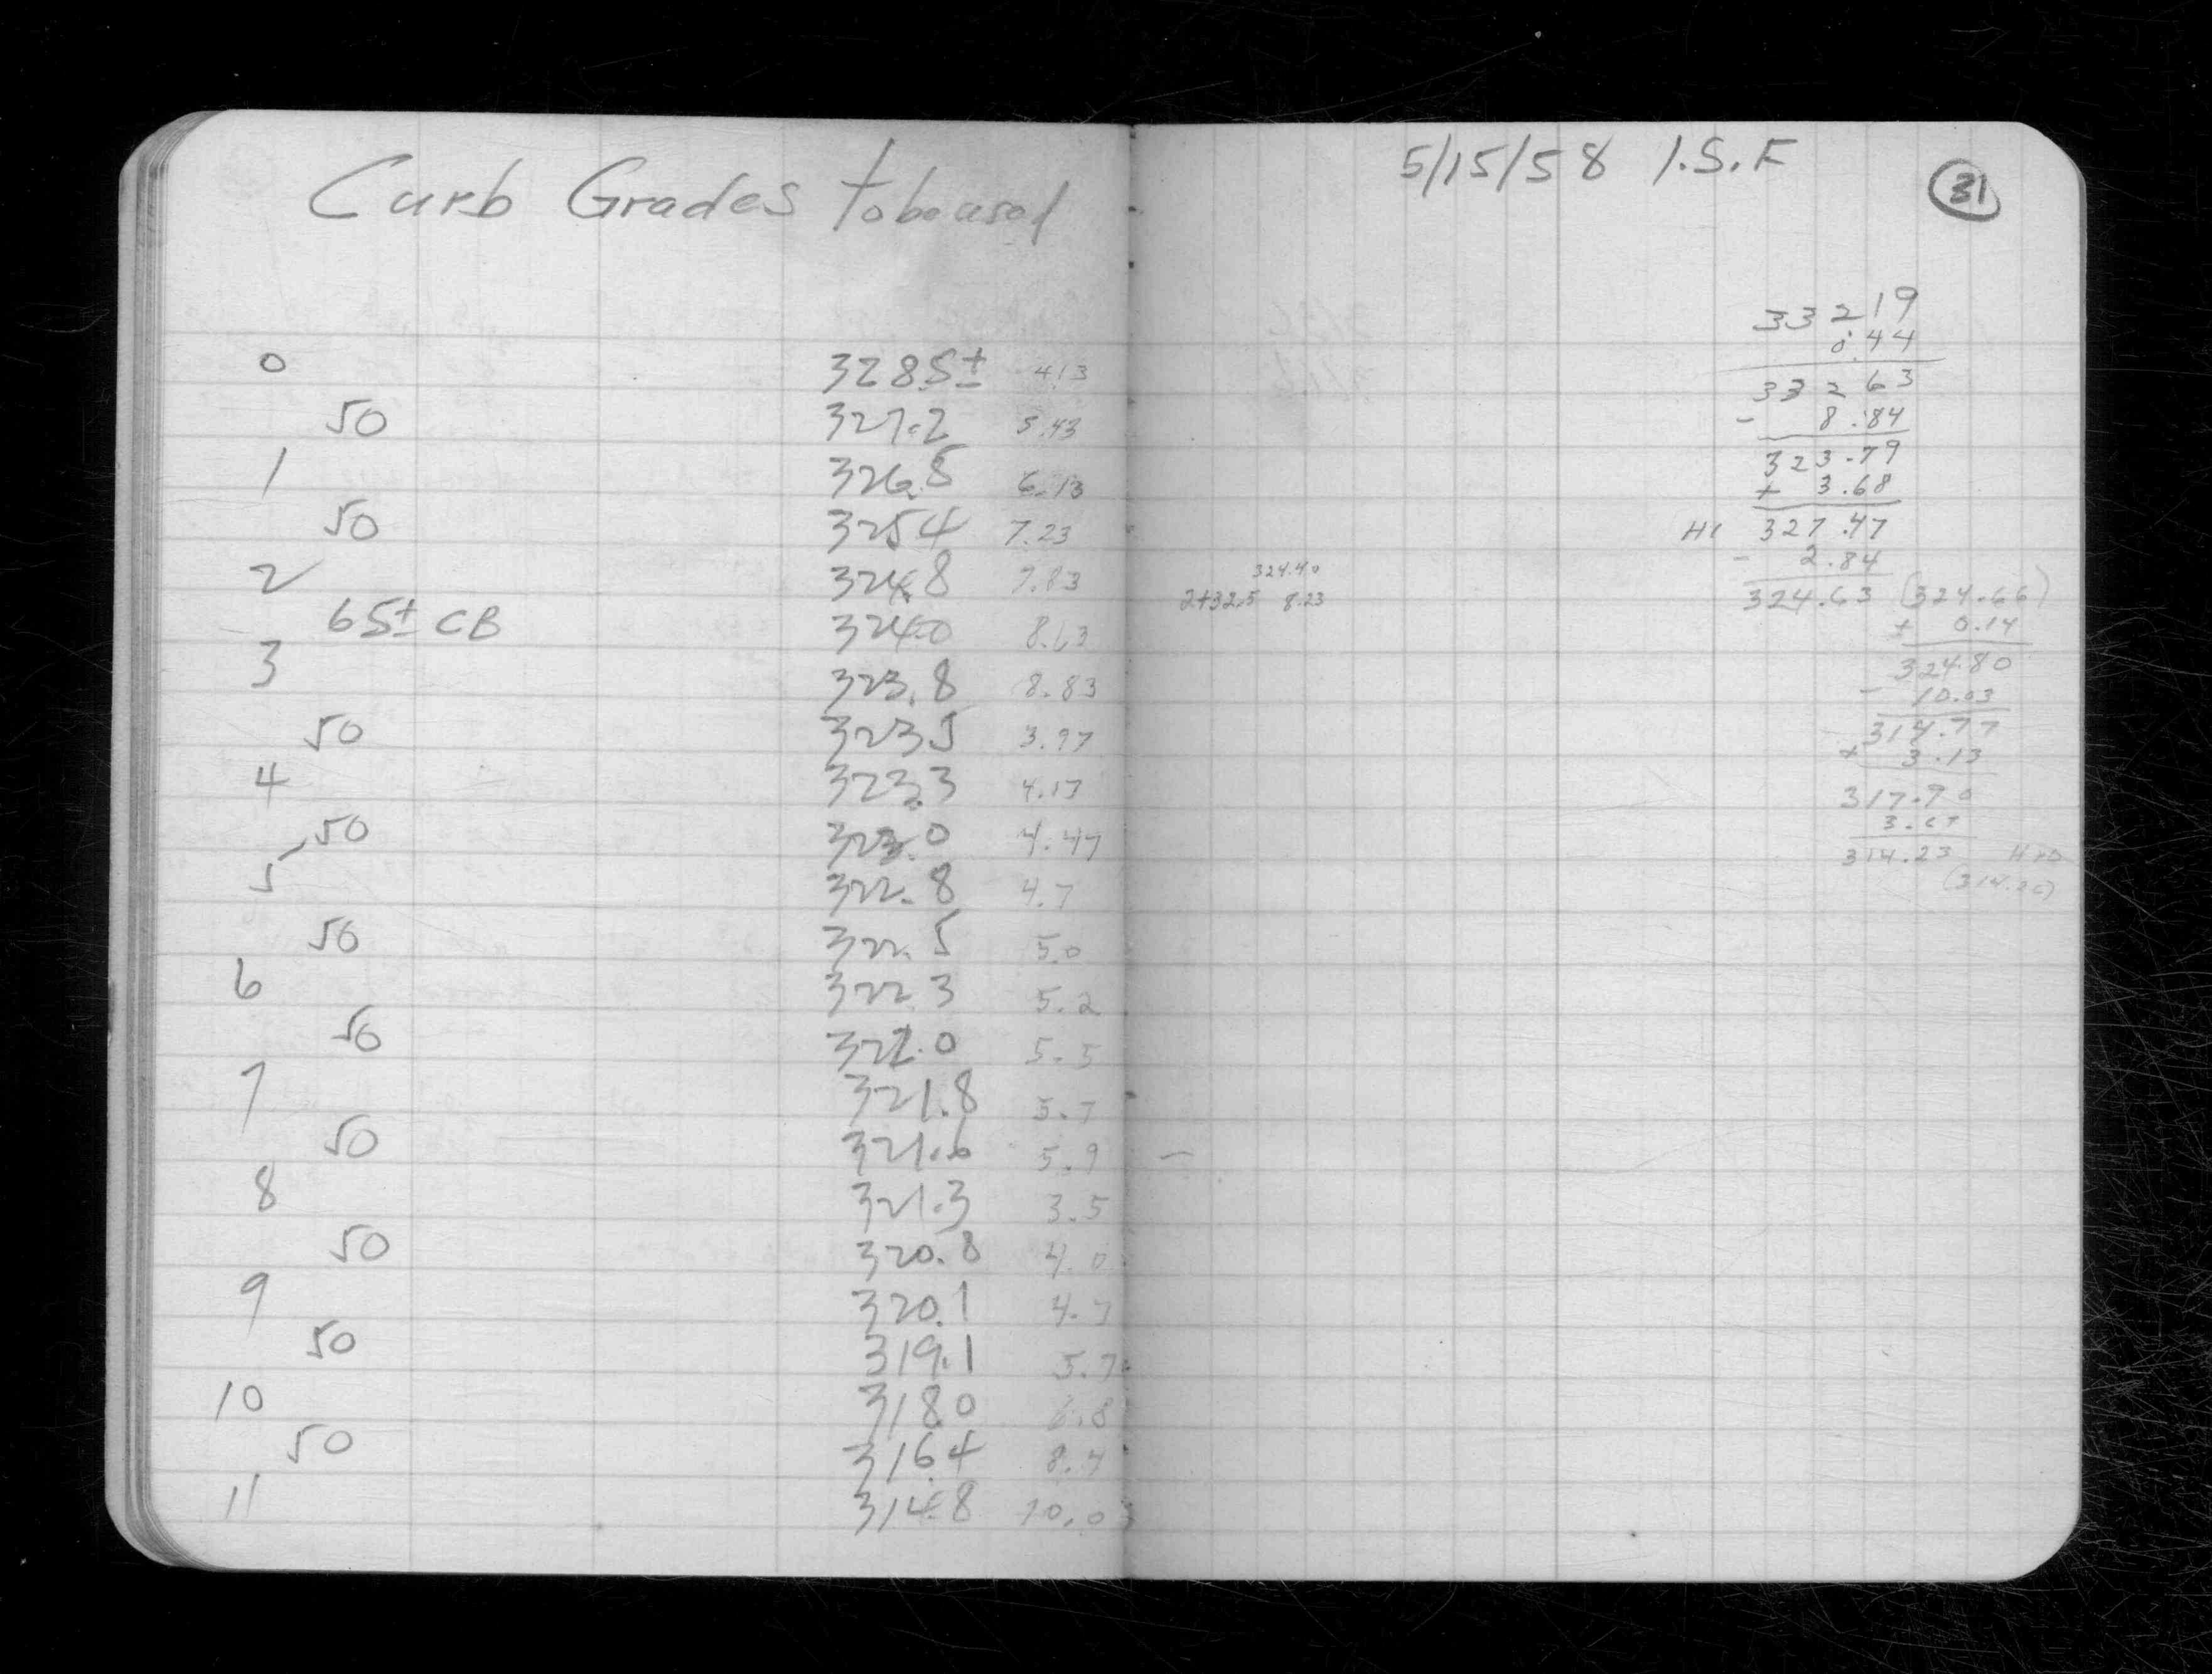 Curb Grades to be used
0 328.5± 4.13
50 327.2 5.43
1 326.5 6.13
50 325.4 7.23
2 324.8 7.83
65± CB 324.0 8.63
3 323.8 8.83
50 323.5 3.97
4 323.3 4.17
50 323.0 4.47
5 322.8 4.7
50 322.5 5.0
6 322.3 5.2
50 322.0 5.5
7 321.8 5.7
50 321.6 5.9
8 321.3 3.5
50 320.8 4.0
9 320.1 4.7
50 319.1 5.7
10 318.0 6.8
50 316.4 8.4
11 314.8 10.0
5/15/58 I.S.F
31
332 19
0.44
332 63
- 8.84
323.79
+ 3.68
HI 327.47
- 2.84
324.63 (324.66)
+ 0.14
324.80
- 10.03
314.77
+ 3.13
317.90
3.67
314.23 HYD
(314.26)
324.40
2+32.5 8.23